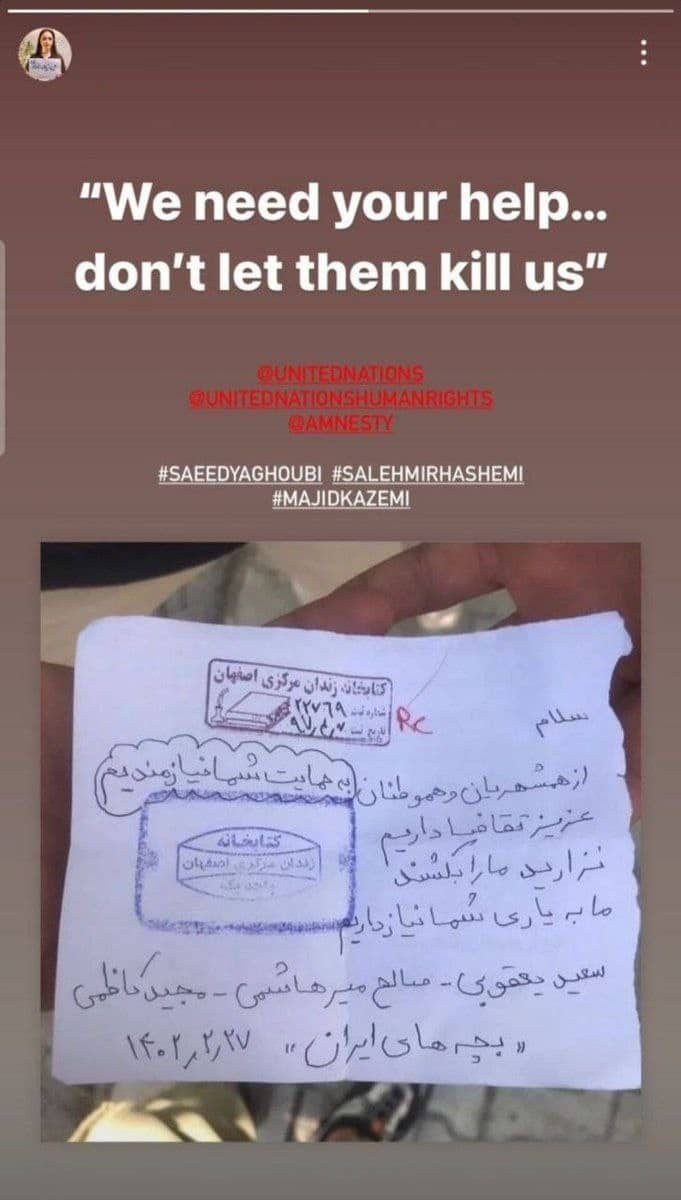 “We need your help...
don’t let them kill us”
@UNITEDNATIONS
@UNITEDNATIONSHUMANRIGHTS
@AMNESTY
#SAEEDYAGHOUBI #SALEHMIRHASHEMI
#MAJIDKAZEMI
کتابخانه زندان مرکزی اصفهان
شماره ثبت ۲۲۷۶۹
تاریخ ثبت
RC
سلام
از همشهریان و هموطنان
به حمایت شما نیازمندیم
عزیز تقاضا داریم
نزارید ما را بکشند
ما به یاری شما نیاز داریم
کتابخانه
زندان مرکزی اصفهان
سعید یعقوبی - صالح میرهاشمی - مجید کاظمی
«بچه های ایران» ۱۴۰۲٫۲٫۲۷